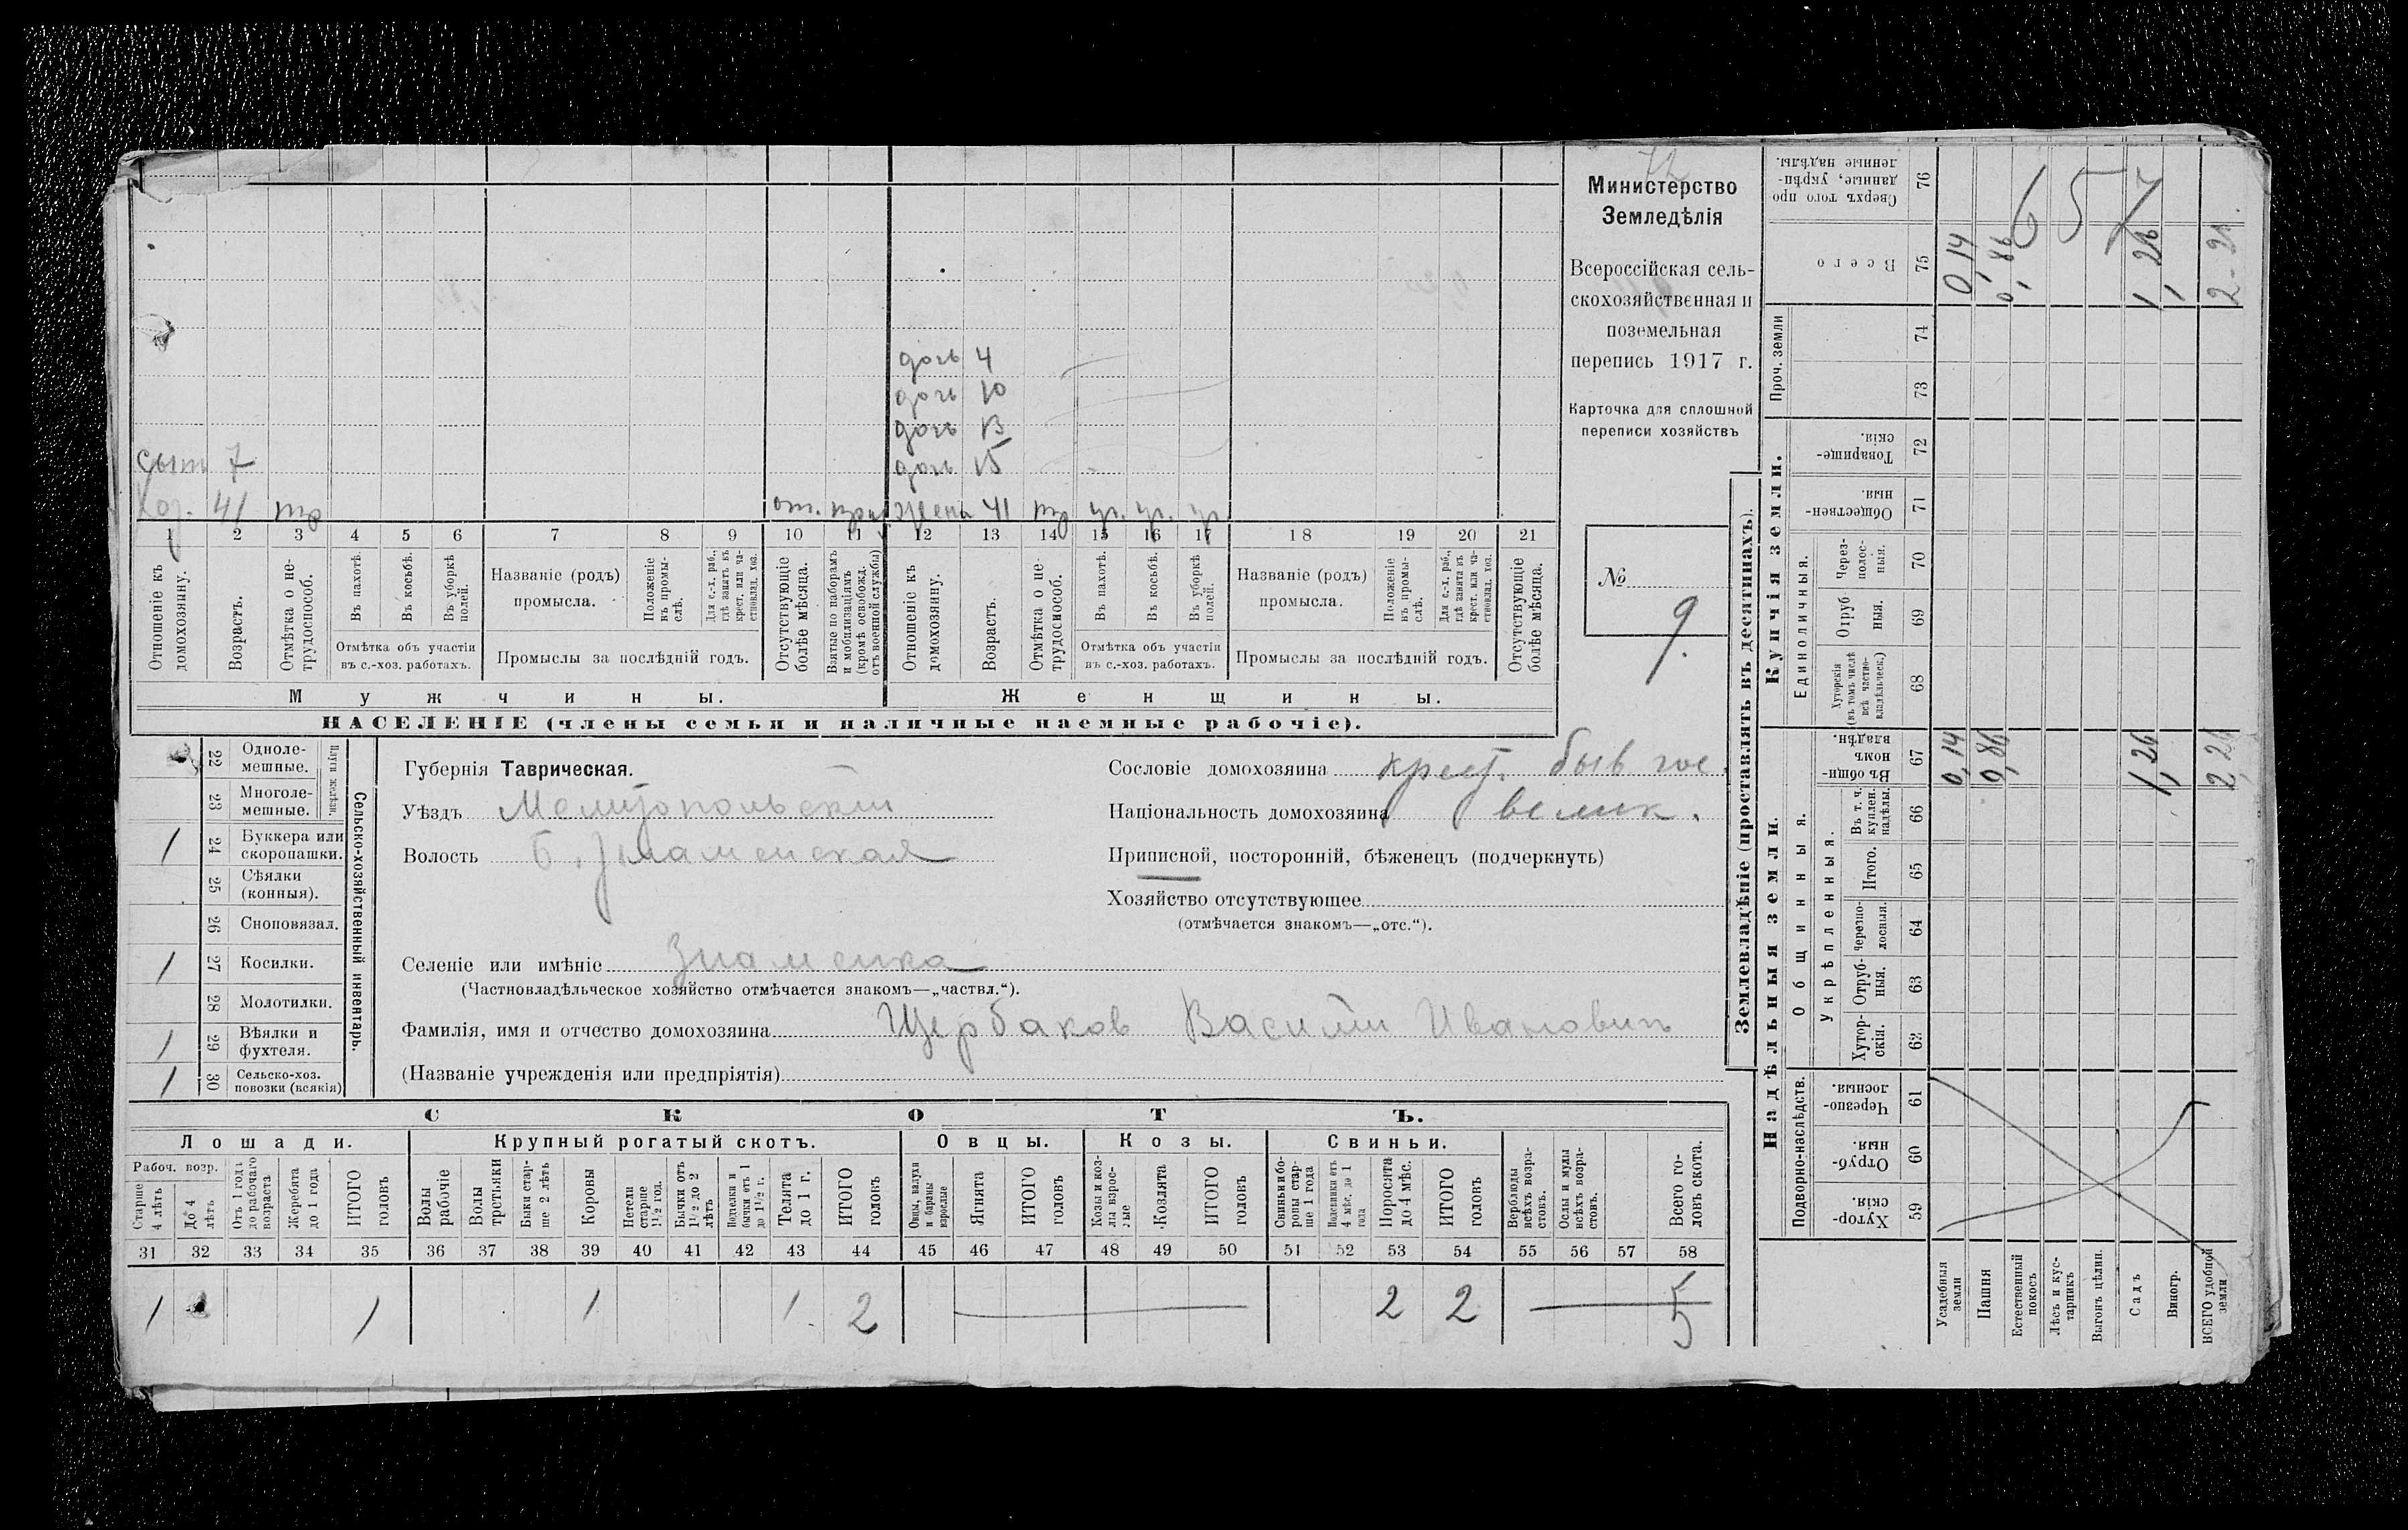 72
Министерство
Земледѣлія
Всероссійская сель-
скохозяйственная и
поземельная
перепись 1917 г.
Карточка для сплошной
переписи хозяйствъ
№
9.
дочь 4
дочь 10
дочь 13
сынъ 7 дочь 15
хоз. 41 тр от. жена 41 тр уч. уч. уч
1 2 3 4 5 6 7 8 9 10 11 12 13 14 15 16 17 18 19 20 21
Отношеніе къ домохозяину.
Возрастъ.
Отмѣтка о не-трудоспособ.
Въ пахотѣ.
Въ косьбѣ.
Въ уборкѣ полей.
Отмѣтка объ участіи въ с.-хоз. работахъ.
Названіе (родъ) промысла.
Положеніе въ промы-слѣ.
Для с.-х. раб., гдѣ занятъ въ крест. или ча-стновлад. хоз.
Промыслы за послѣдній годъ.
Отсутствующіе болѣе мѣсяца.
Взятые по наборамъ и мобилизаціямъ (кромѣ освобожд. отъ военной службы)
Отношеніе къ домохозяину.
Возрастъ.
Отмѣтка о не-трудоспособ.
Въ пахотѣ.
Въ косьбѣ.
Въ уборкѣ полей.
Отмѣтка объ участіи въ с.-хоз. работахъ.
Названіе (родъ) промысла.
Положеніе въ промы-слѣ.
Для с.-х. раб., гдѣ занята въ крест. или ча-стновлад. хоз.
Промыслы за послѣдній годъ.
Отсутствующіе болѣе мѣсяца.
Мужчины.
Женщины.
НАСЕЛЕНІЕ (члены семьи и наличные наемные рабочіе).
Сельско-хозяйственный инвентарь.
Плуги желѣзн.
22 Одноле-мешные.
23 Многоле-мешные.
1 24 Буккера или скоропашки.
25 Сѣялки (конныя).
26 Сноповязал.
1 27 Косилки.
28 Молотилки.
1 29 Вѣялки и фухтеля.
1 30 Сельско-хоз. повозки (всякія)
Губернія Таврическая.
Уѣздъ Мелитопольскій
Волость Б. Знаменская
Сословіе домохозяина крест. быв. гос.
Національность домохозяина велик.
Приписной, посторонній, бѣженецъ (подчеркнуть)
Хозяйство отсутствующее
(отмѣчается знакомъ—„отс.“).
Селеніе или имѣніе Знаменка
(Частновладѣльческое хозяйство отмѣчается знакомъ—„частвл.“).
Фамилія, имя и отчество домохозяина Щербаков Василій Ивановичъ
(Названіе учрежденія или предпріятія)
СКОТЪ.
Лошади.
Крупный рогатый скотъ.
Овцы.
Козы.
Свиньи.
Рабоч. возр.
Старше 4 лѣтъ
До 4 лѣтъ
Отъ 1 года до рабочаго возраста
Жеребята до 1 года
ИТОГО головъ
Волы рабочіе
Волы третьяки
Быки стар-ше 2 лѣтъ
Коровы
Нетели старше 1½ год.
Бычки отъ 1½ до 2 лѣтъ
Подтелки и бычки отъ 1 до 1½ г.
Телята до 1 г.
ИТОГО головъ
Овцы, валухи и бараны взрослые
Ягнята
ИТОГО головъ
Козы и коз-лы взрос-лые
Козлята
ИТОГО головъ
Свиньи и бо-ровы стар-ше 1 года
Подсвинки отъ 4 мѣс. до 1 года
Поросята до 4 мѣс.
ИТОГО головъ
Верблюды всѣхъ возра-стовъ.
Ослы и мулы всѣхъ возра-стовъ.
Всего го-ловъ скота.
31 32 33 34 35 36 37 38 39 40 41 42 43 44 45 46 47 48 49 50 51 52 53 54 55 56 57 58
1 1 1 1 2 2 2 5
Землевладѣніе (проставлять въ десятинахъ).
Надѣльныя земли.
Купчія земли.
Проч. земли
Подворно-наслѣдств.
Общинныя.
Укрѣпленныя.
Единоличныя.
Хутор-скія. 59
Отруб-ныя. 60
Черезпо-лосныя. 61
Хутор-скія. 62
Отруб-ныя. 63
Черезпо-лосныя. 64
Итого. 65
Въ т. ч. куплен. надѣлы. 66
Въ общин-номъ владѣн. 67
Хуторскія (въ томъ числѣ всѣ частно-владѣльческ.) 68
Отруб-ныя. 69
Через-полос-ныя. 70
Обществен-ныя. 71
Товарище-скія. 72
73
74
Всего 75
Сверхъ того про-данные, укрѣп-ленные надѣлы. 76
Усадебныя земли 0,14 0,14
Пашня 0,86 0,86
Естественный покосъ
Лѣсъ и кус-тарникъ
Выгонъ цѣлин.
Садъ 1,26 1,26
Виногр.
ВСЕГО удобной земли 2,26
657